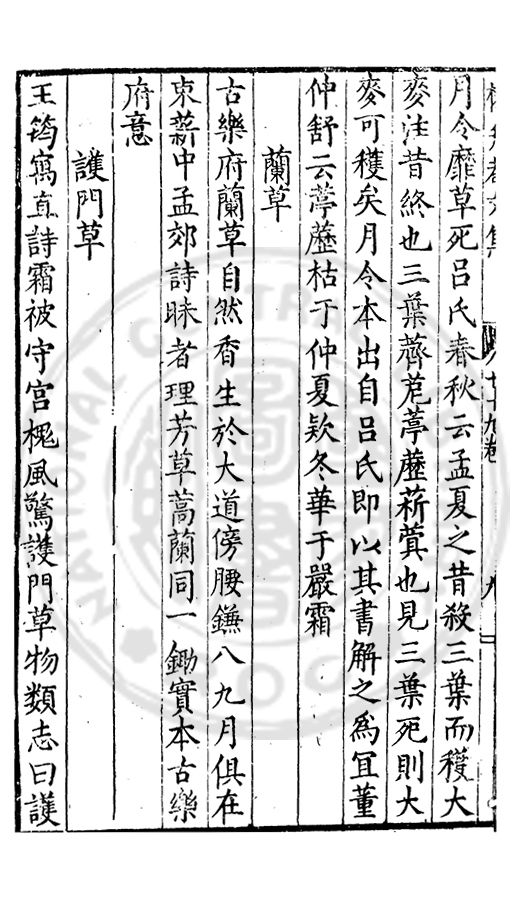 月令靡草死呂氏春秋云孟夏之昔殺三葉而穫大
麥注昔終也三葉薺苨葶藶菥蓂也見三葉死則大
麥可穫矣月令本出自呂氏即以其書解之爲宜董
仲舒云葶藶枯于仲夏欵冬華于嚴霜
蘭草
古樂府蘭草自然香生於大道傍腰鎌八九月俱在
束薪中孟郊詩昧者理芳草蒿蘭同一鋤實本古樂
府意
護門草
王筠寓直詩霜被守宮槐風驚護門草物類志曰護